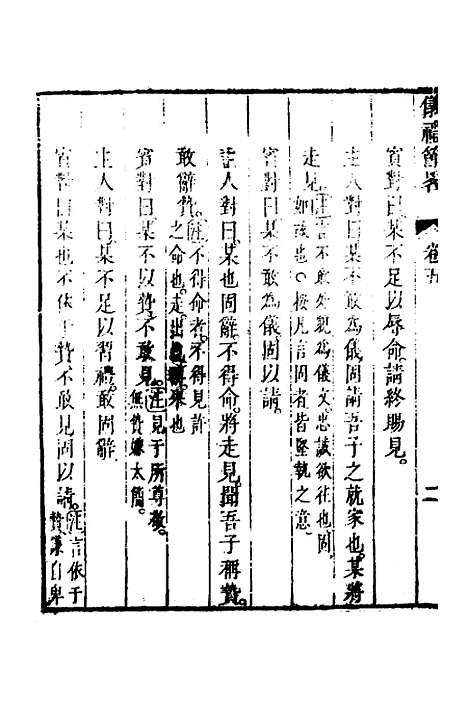 儀禮節畧
卷五
二
賓對曰某不足以辱命請終賜見
主人對曰某不敢為儀固請吾子之就家也某將
走見注言不敢外貌為儀文忠誠欲往也固
如故也○按凡言固者皆堅執之意
賓對曰某不敢為儀固以請
主人對曰某也固辭不得命將走見聞吾子稱贄
敢辭贄注不得命者不得見許
之命也走出也
賓對曰某不以贄不敢見注見于所尊敬
無贄嫌太簡
主人對曰某不足以習禮敢固辭
賓對曰某也不依于贄不敢見固以請注言依于
贄謙自卑